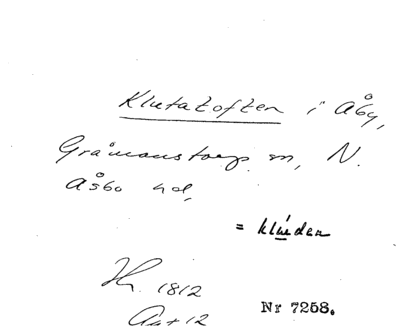 Klutatoften i Åby,
Gråmanstorp sn, N.
Åsbo hd,
= klúeden
1812
Akt 12 Nr 7258.